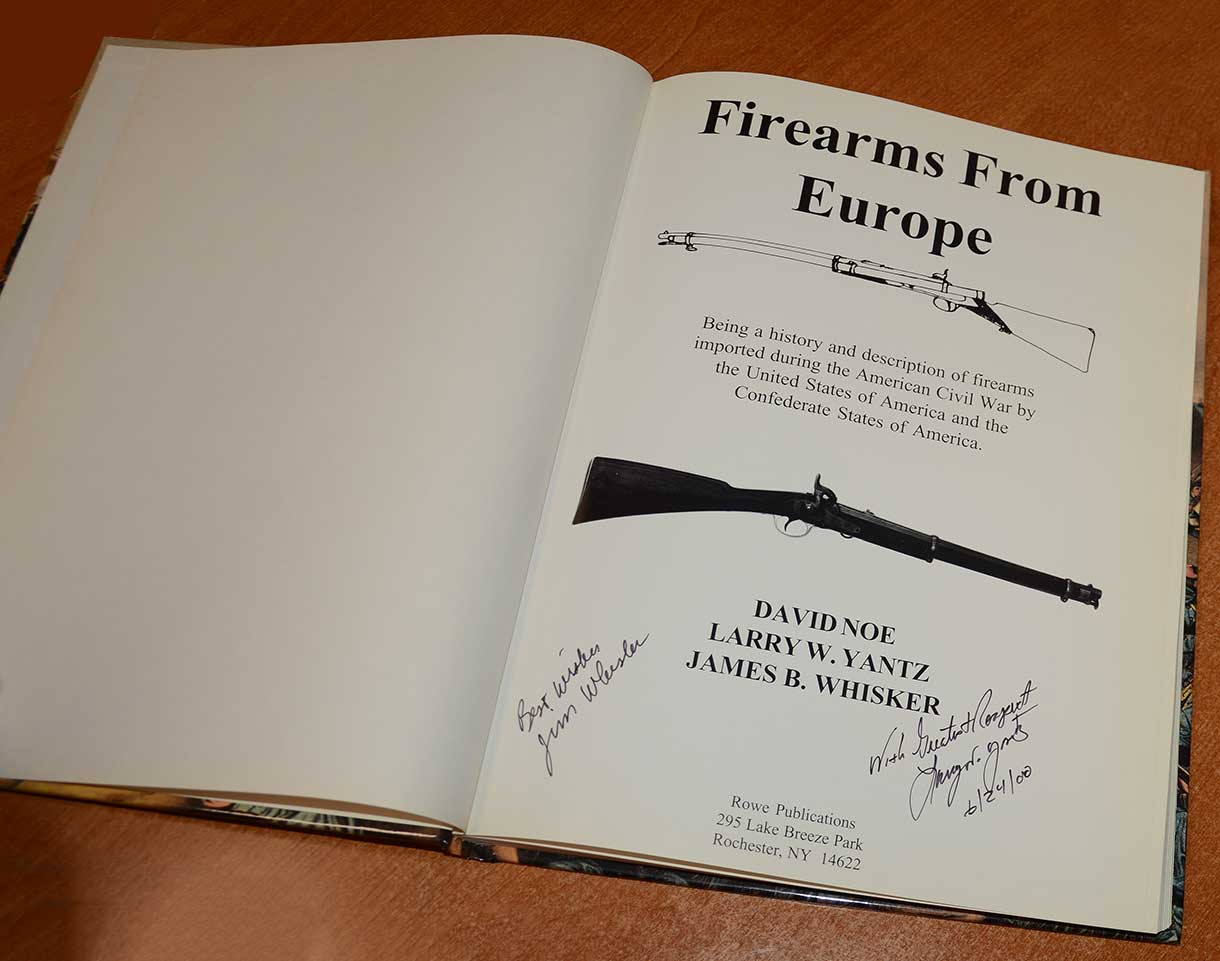 Firearms From
Europe
Being a history and description of firearms
imported during the American Civil War by
the United States of America and the
Confederate States of America.
DAVID NOE
LARRY W. YANTZ
JAMES B. WHISKER
Best Wishes
Jim Whisker
With Greatest Respect
Larry W. Yantz
6/24/00
Rowe Publications
295 Lake Breeze Park
Rochester, NY 14622